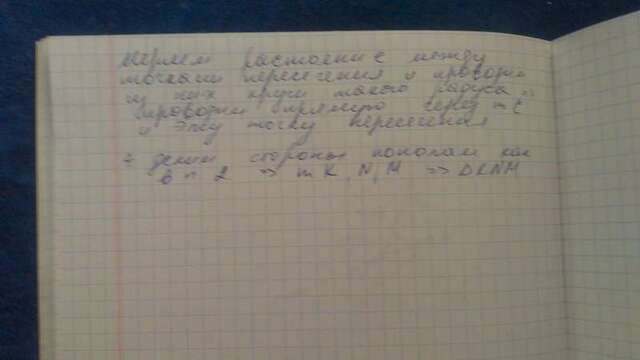 меряем растоение между
точками пересечения и проводим
из них круги такого радиуса
проводим прямую через т С
и эту точку пересечения
7 делим стороны пополам как
в п 2 => т К, N, M => DKNM